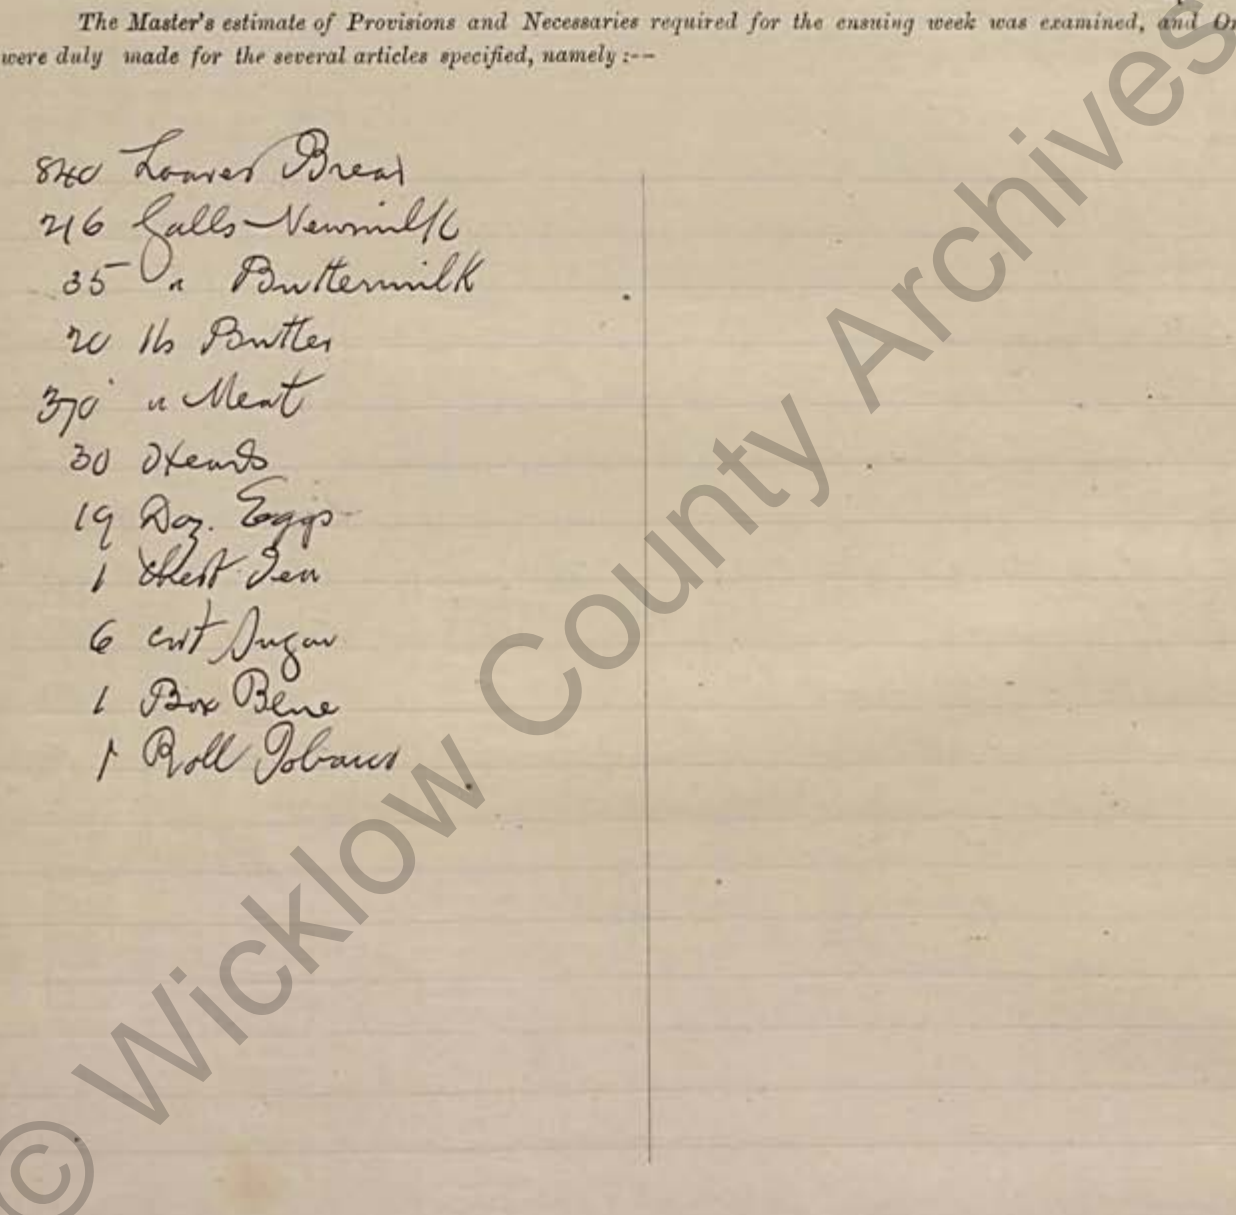 The Master's estimate of Provisions and Necessaries required for the ensuing week was examined, and Or
were duly made for the several articles specified, namely :--
840 Loaves Bread
216 Galls Newmilk
35 " Buttermilk
20 lbs Butter
370 " Meat
30 Oxheads
19 Doz. Eggs
1 Chest Tea
6 cwt Sugar
1 Box Blue
1 Roll Tobacco
© Wicklow County Archives